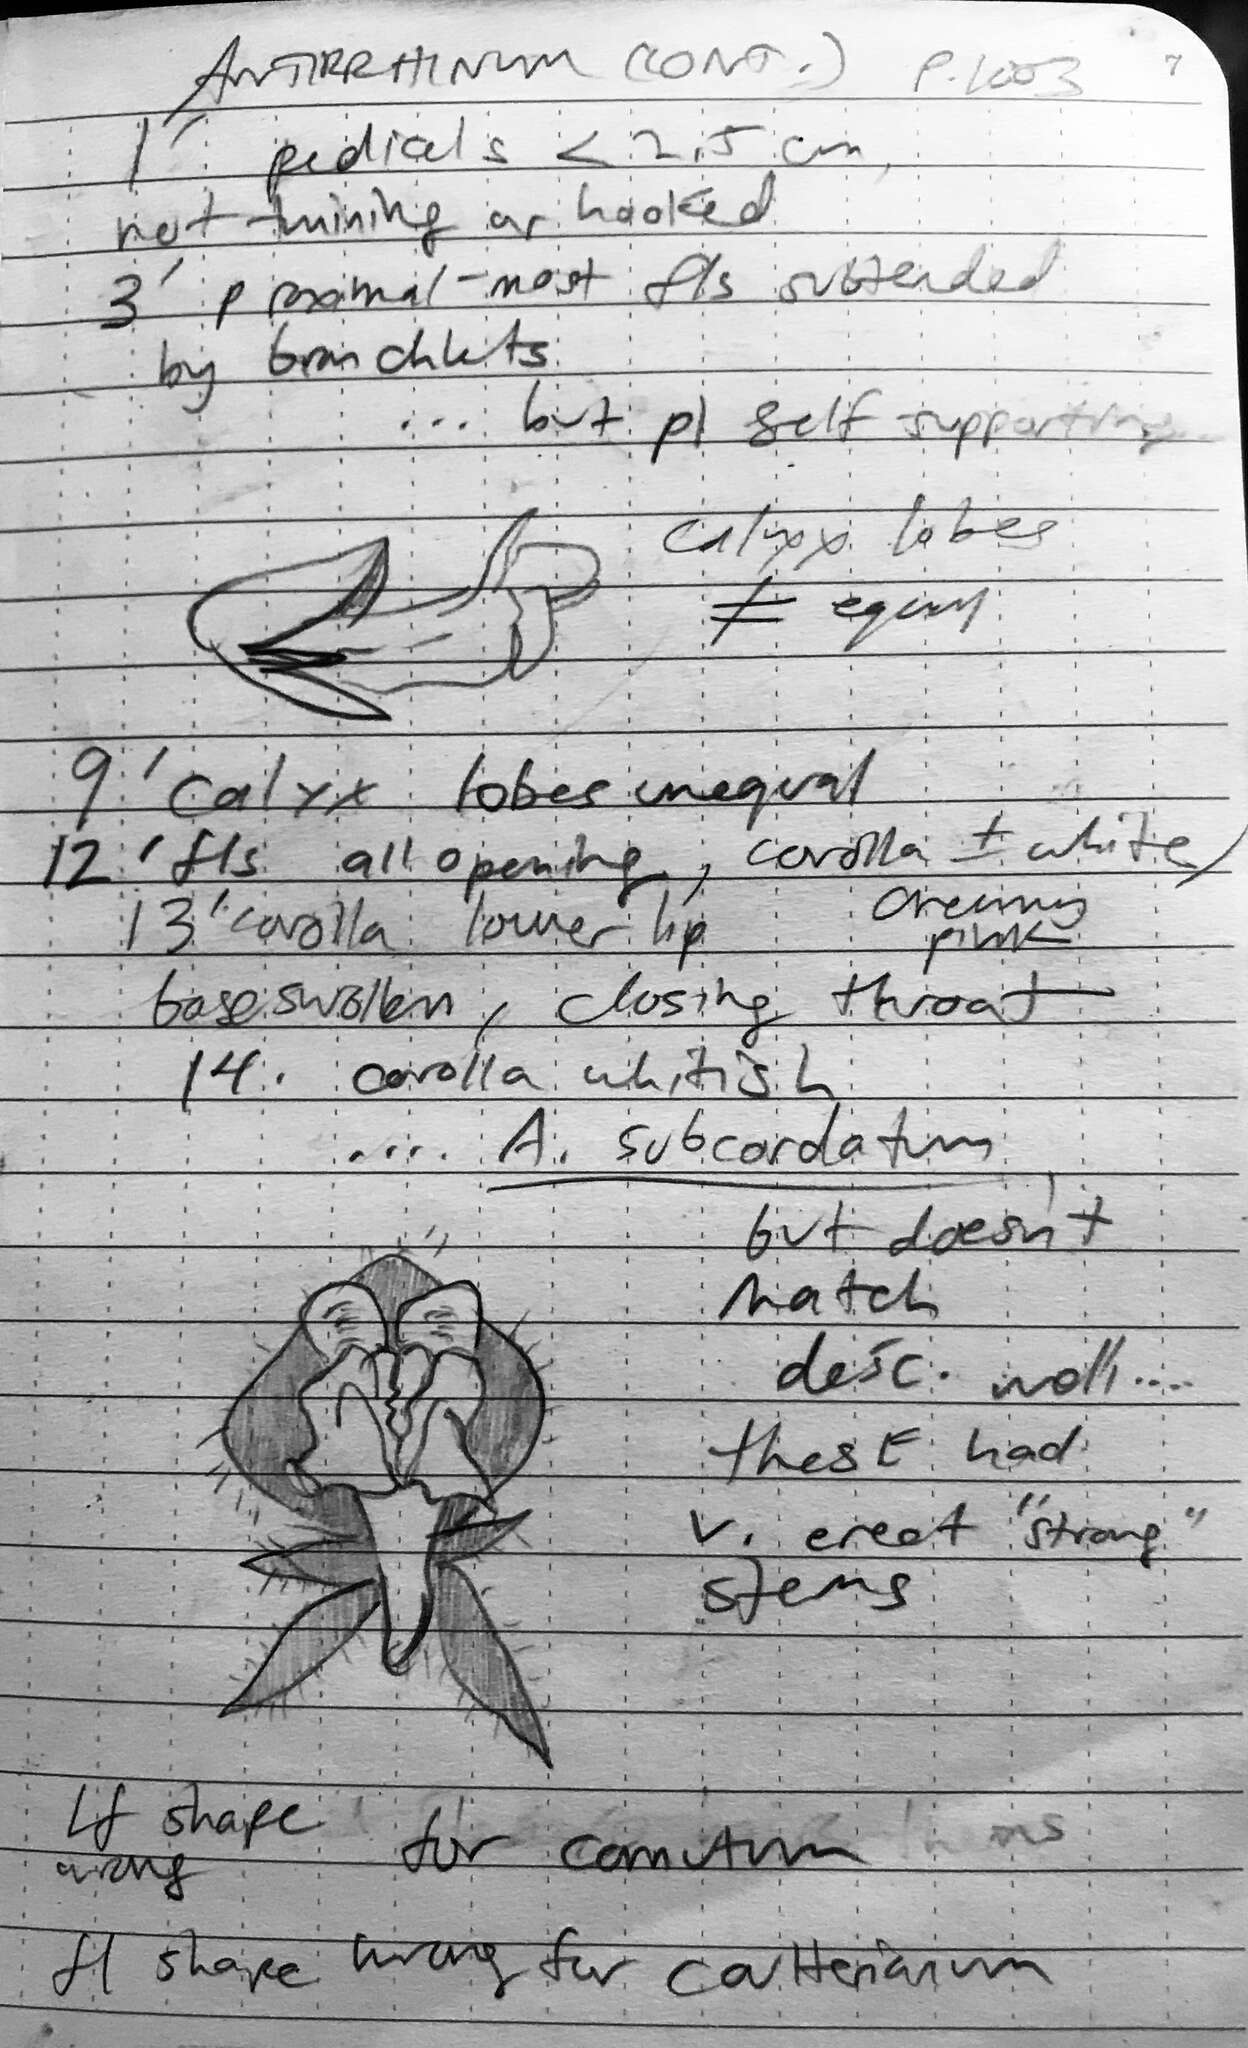 ANTIRRHINUM (CONT.) P. 1003 7
1' pedicels < 2.5 cm,
not twining or hooked
3' proximal-most fls subtended
by branchlets
... but pl self supporting
calyx lobes
≠ equal
9' calyx lobes unequal
12' fls all opening, corolla ± white/
creamy
pink
13' corolla lower lip
base swollen, closing throat
14. corolla whitish
.... A. subcordatum
but doesn't
match
desc. well....
these had
v. erect "strong"
stems
Lf shape
wrong for cornutum
fl shape wrong for coulterianum